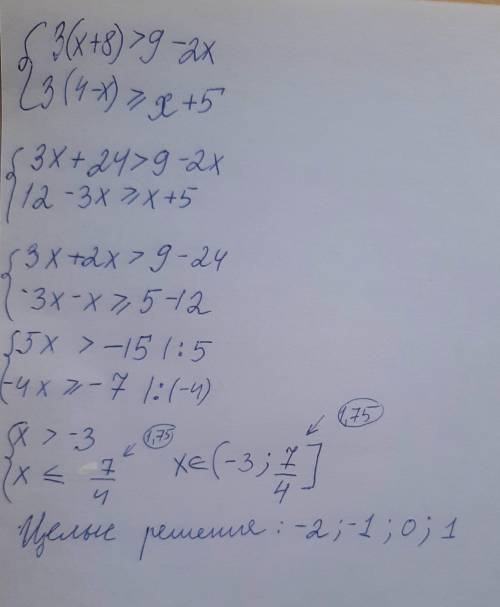 { 3(x+8) > 9 - 2x
3(4-x) ⩾ x+5
{ 3x + 24 > 9 - 2x
12 - 3x ⩾ x+5
{ 3x + 2x > 9 - 24
-3x - x ⩾ 5 - 12
{ 5x > -15 |:5
-4x ⩾ -7 |:(-4)
{ x > -3
x ⩽ 7/4 1,75 x∈(-3; 7/4] 1,75
Целые решения: -2; -1; 0; 1